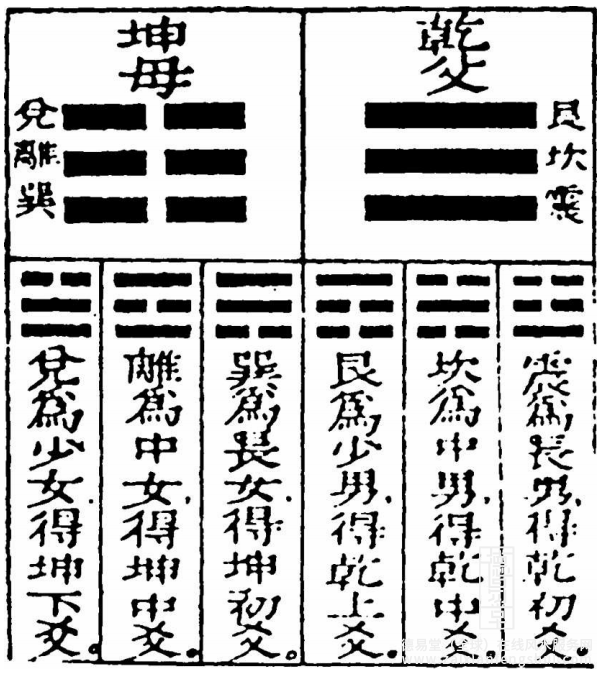 乾父
艮
坎
震
坤母
兌
離
巽
震爲長男，得乾初爻。
坎爲中男，得乾中爻。
艮爲少男，得乾上爻。
巽爲長女，得坤初爻。
離爲中女，得坤中爻。
兌爲少女，得坤下爻。